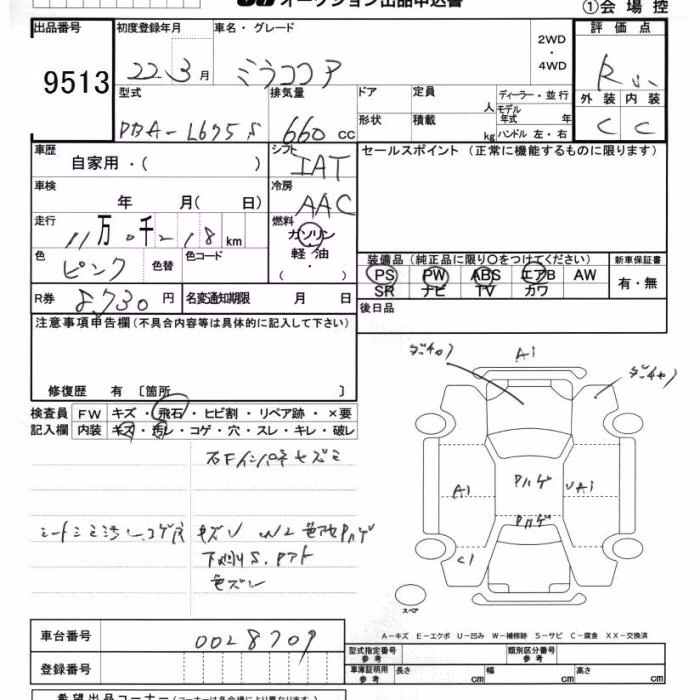 オークション出品申込書
①会場控
出品番号 初度登録年月 車名・グレード 評価点
9513 22.3月 ミラココア 2WD・4WD R
型式 排気量 ドア 定員 人 ディーラー・並行 外装 内装
DBA-L675S 660cc 形状 積載 kg モデル年式 年 C C
ハンドル 左・右
車歴 シフト セールスポイント (正常に機能するものに限ります)
自家用・( ) IAT
車検 冷房
年 月( 日) AAC
走行 燃料
11万0千218km ガソリン
色 色替 色コード 軽油
ピンク (・) 装備品 (純正品に限り○をつけてください) 新車保証書
PS PW ABS エアB AW 有・無
SR ナビ TV カワ
R券 8,730円 名変通知期限 月 日 後日品
注意事項申告欄 (不具合内容等は具体的に記入して下さい)
修復歴 有 〔箇所 〕
検査員 FW キズ・飛石・ヒビ割・リペア跡・×要
記入欄 内装 キズ・汚レ・コゲ・穴・スレ・キレ・破レ
ダンチャリ A1 ダンチャリ
A1 Pハゲ UA1
Pハゲ
C1
スペア
A-キズ E-エクボ U-凹み W-補修跡 S-サビ C-腐食 XX-交換済
車台番号 0028709 型式指定番号 参考 類別区分番号 参考
登録番号 車庫証明用 参考 長さ cm 幅 cm 高さ cm
希望出品コーナー